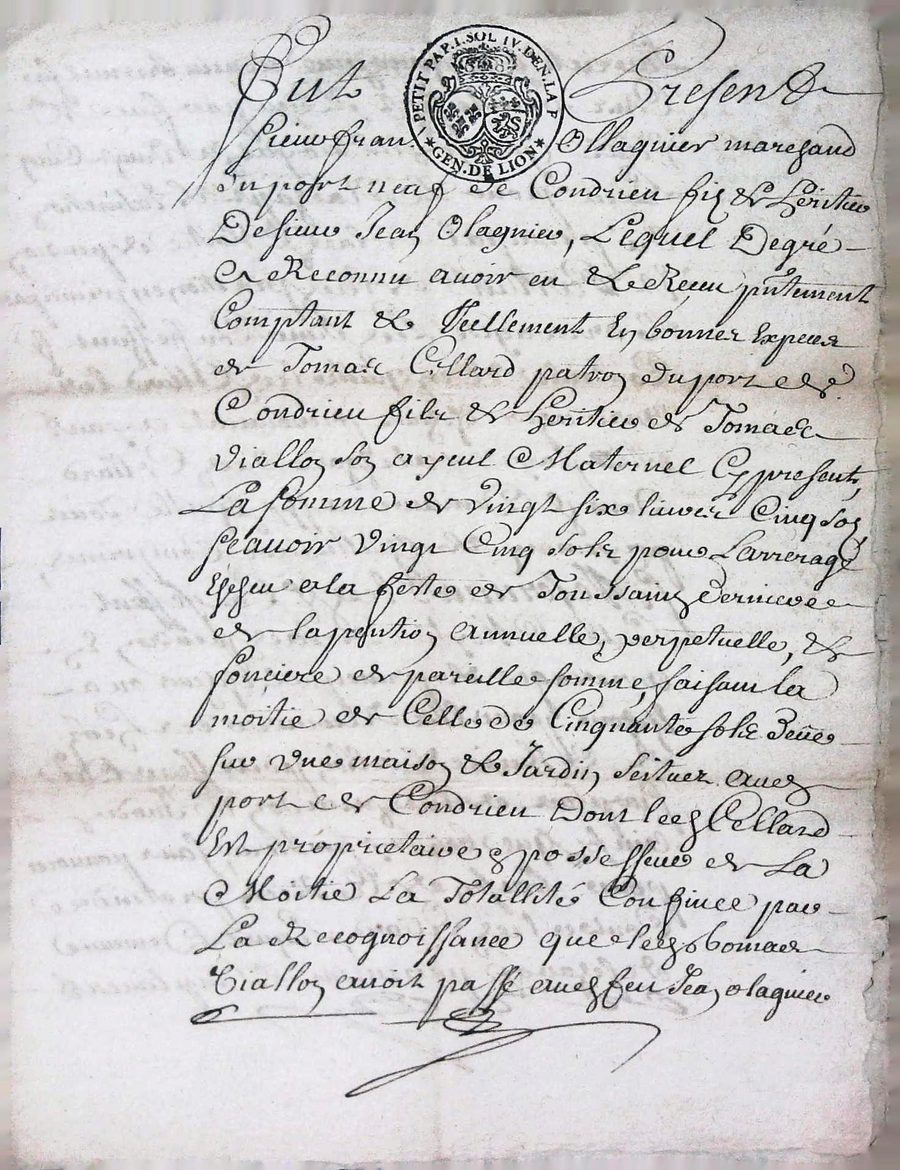 V PETIT PAP. I. SOL IV. DEN. LA F
GEN. DE LION
Fut Present
Sieur fran. Ollagnier marchand
du port neuf de Condrieu fils & héritier
De sieur Jean Olagnier, Lequel De gré
A Reconnu avoir eu & Receu pntement
Comptant & Reellement En bonnes Expeces
de Tomas Cellard patron du port de
Condrieu fils & héritier de Tomas
Viallon son ayeul Maternel Cy present,
La somme de vingt six livres Cinq sols
scavoir vingt Cinq sols pour L'arrerage
Escheu a la feste de Toussaint derniere
de la pention annuelle, perpetuelle, &
fonciere de pareille somme, faisant la
moitié de Celle de Cinquante sols deüe
sur une maison & Jardin scituez aud
port de Condrieu Dont led Cellard
Est proprietaire & possesseur de La
Moitié La Totallité Confinée par
La Recognoissance que led Tomas
Viallon avoit passé aud feu Jean olagnier